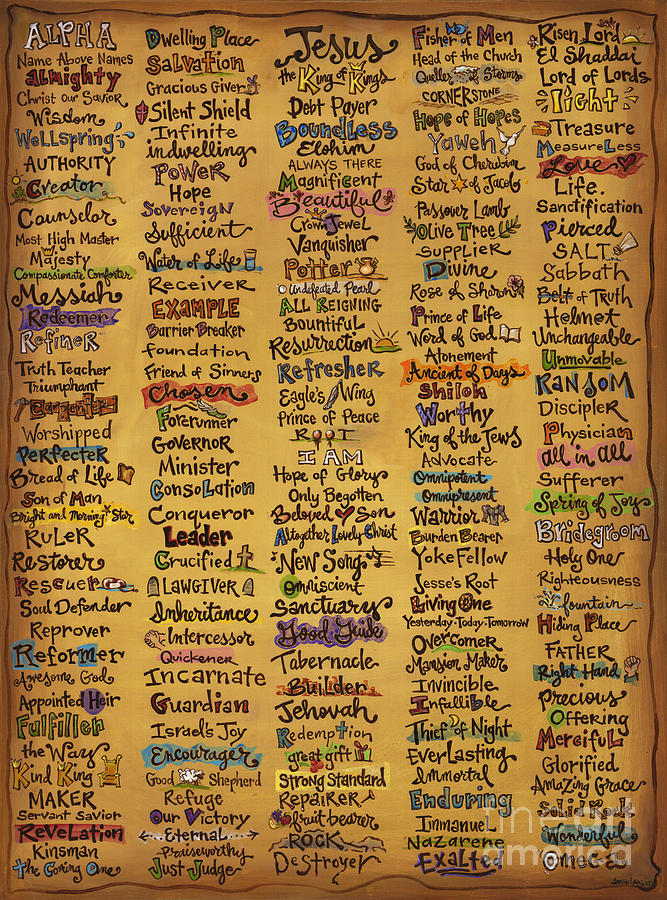 ALPHA
Name Above Names
almighty
Christ Our Savior
Wisdom
Wellspring
AUTHORITY
Creator
Counselor
Most High Master
Majesty
Compassionate Comforter
Messiah
Redeemer
Refiner
Truth Teacher
Triumphant
Carpenter
Worshipped
Perfecter
Bread of Life
Son of Man
Bright and Morning Star
Ruler
Restorer
Rescuer
Soul Defender
Reprover
Reformer
Awesome God
Appointed Heir
Fulfiller
the Way
Kind King
MAKER
Servant Savior
Revelation
Kinsman
The Coming One
Dwelling Place
Salvation
Gracious Giver
Silent Shield
Infinite
indwelling
Power
Hope
Sovereign
Sufficient
Water of Life
Receiver
EXAMPLE
Barrier Breaker
foundation
Friend of Sinners
Chosen
Forerunner
Governor
Minister
Consolation
Conqueror
Leader
Crucified
LAWGIVER
Inheritance
Intercessor
Quickener
Incarnate
Guardian
Israel's Joy
Encourager
Good Shepherd
Refuge
Our Victory
Eternal
Praiseworthy
Just Judge
Jesus
the King of Kings
Debt Payer
Boundless
Elohim
ALWAYS THERE
Magnificent
Beautiful
Crown Jewel
Vanquisher
Potter
Undefeated Pearl
ALL REIGNING
Bountiful
Resurrection
Refresher
Eagle's Wing
Prince of Peace
ROOT
I AM
Hope of Glory
Only Begotten
Beloved Son
Altogether Lovely Christ
New Song
Omniscient
Sanctuary
Good Guide
Tabernacle
Builder
Jehovah
Redemption
great gift
Strong Standard
Repairer
fruit bearer
ROCK
Destroyer
Fisher of Men
Head of the Church
Queller of Storms
CORNERSTONE
Hope of Hopes
Yaweh
God of Cherubim
Star of Jacob
Passover Lamb
Olive Tree
Supplier
Divine
Rose of Sharon
Prince of Life
Word of God
Atonement
Ancient of Days
Shiloh
Worthy
King of the Jews
Advocate
Omnipotent
Omnipresent
Warrior
Burden Bearer
Yoke Fellow
Jesse's Root
Living One
Yesterday-Today-Tomorrow
Overcomer
Mansion Maker
Invincible
Infallible
Thief of Night
EverLasting
Immortal
Enduring
Immanuel
Nazarene
Exalted
Risen Lord
El Shaddai
Lord of Lords
light
Treasure
Measureless
Love
Life
Sanctification
Pierced
SALT
Sabbath
Belt of Truth
Helmet
Unchangeable
Unmovable
Ransom
Discipler
Physician
all in all
Sufferer
Spring of Joys
Bridegroom
Holy One
Righteousness
fountain
Hiding Place
FATHER
Right Hand
Precious
Offering
Merciful
Glorified
Amazing Grace
Solid Rock
Wonderful
Omega
fine art
america